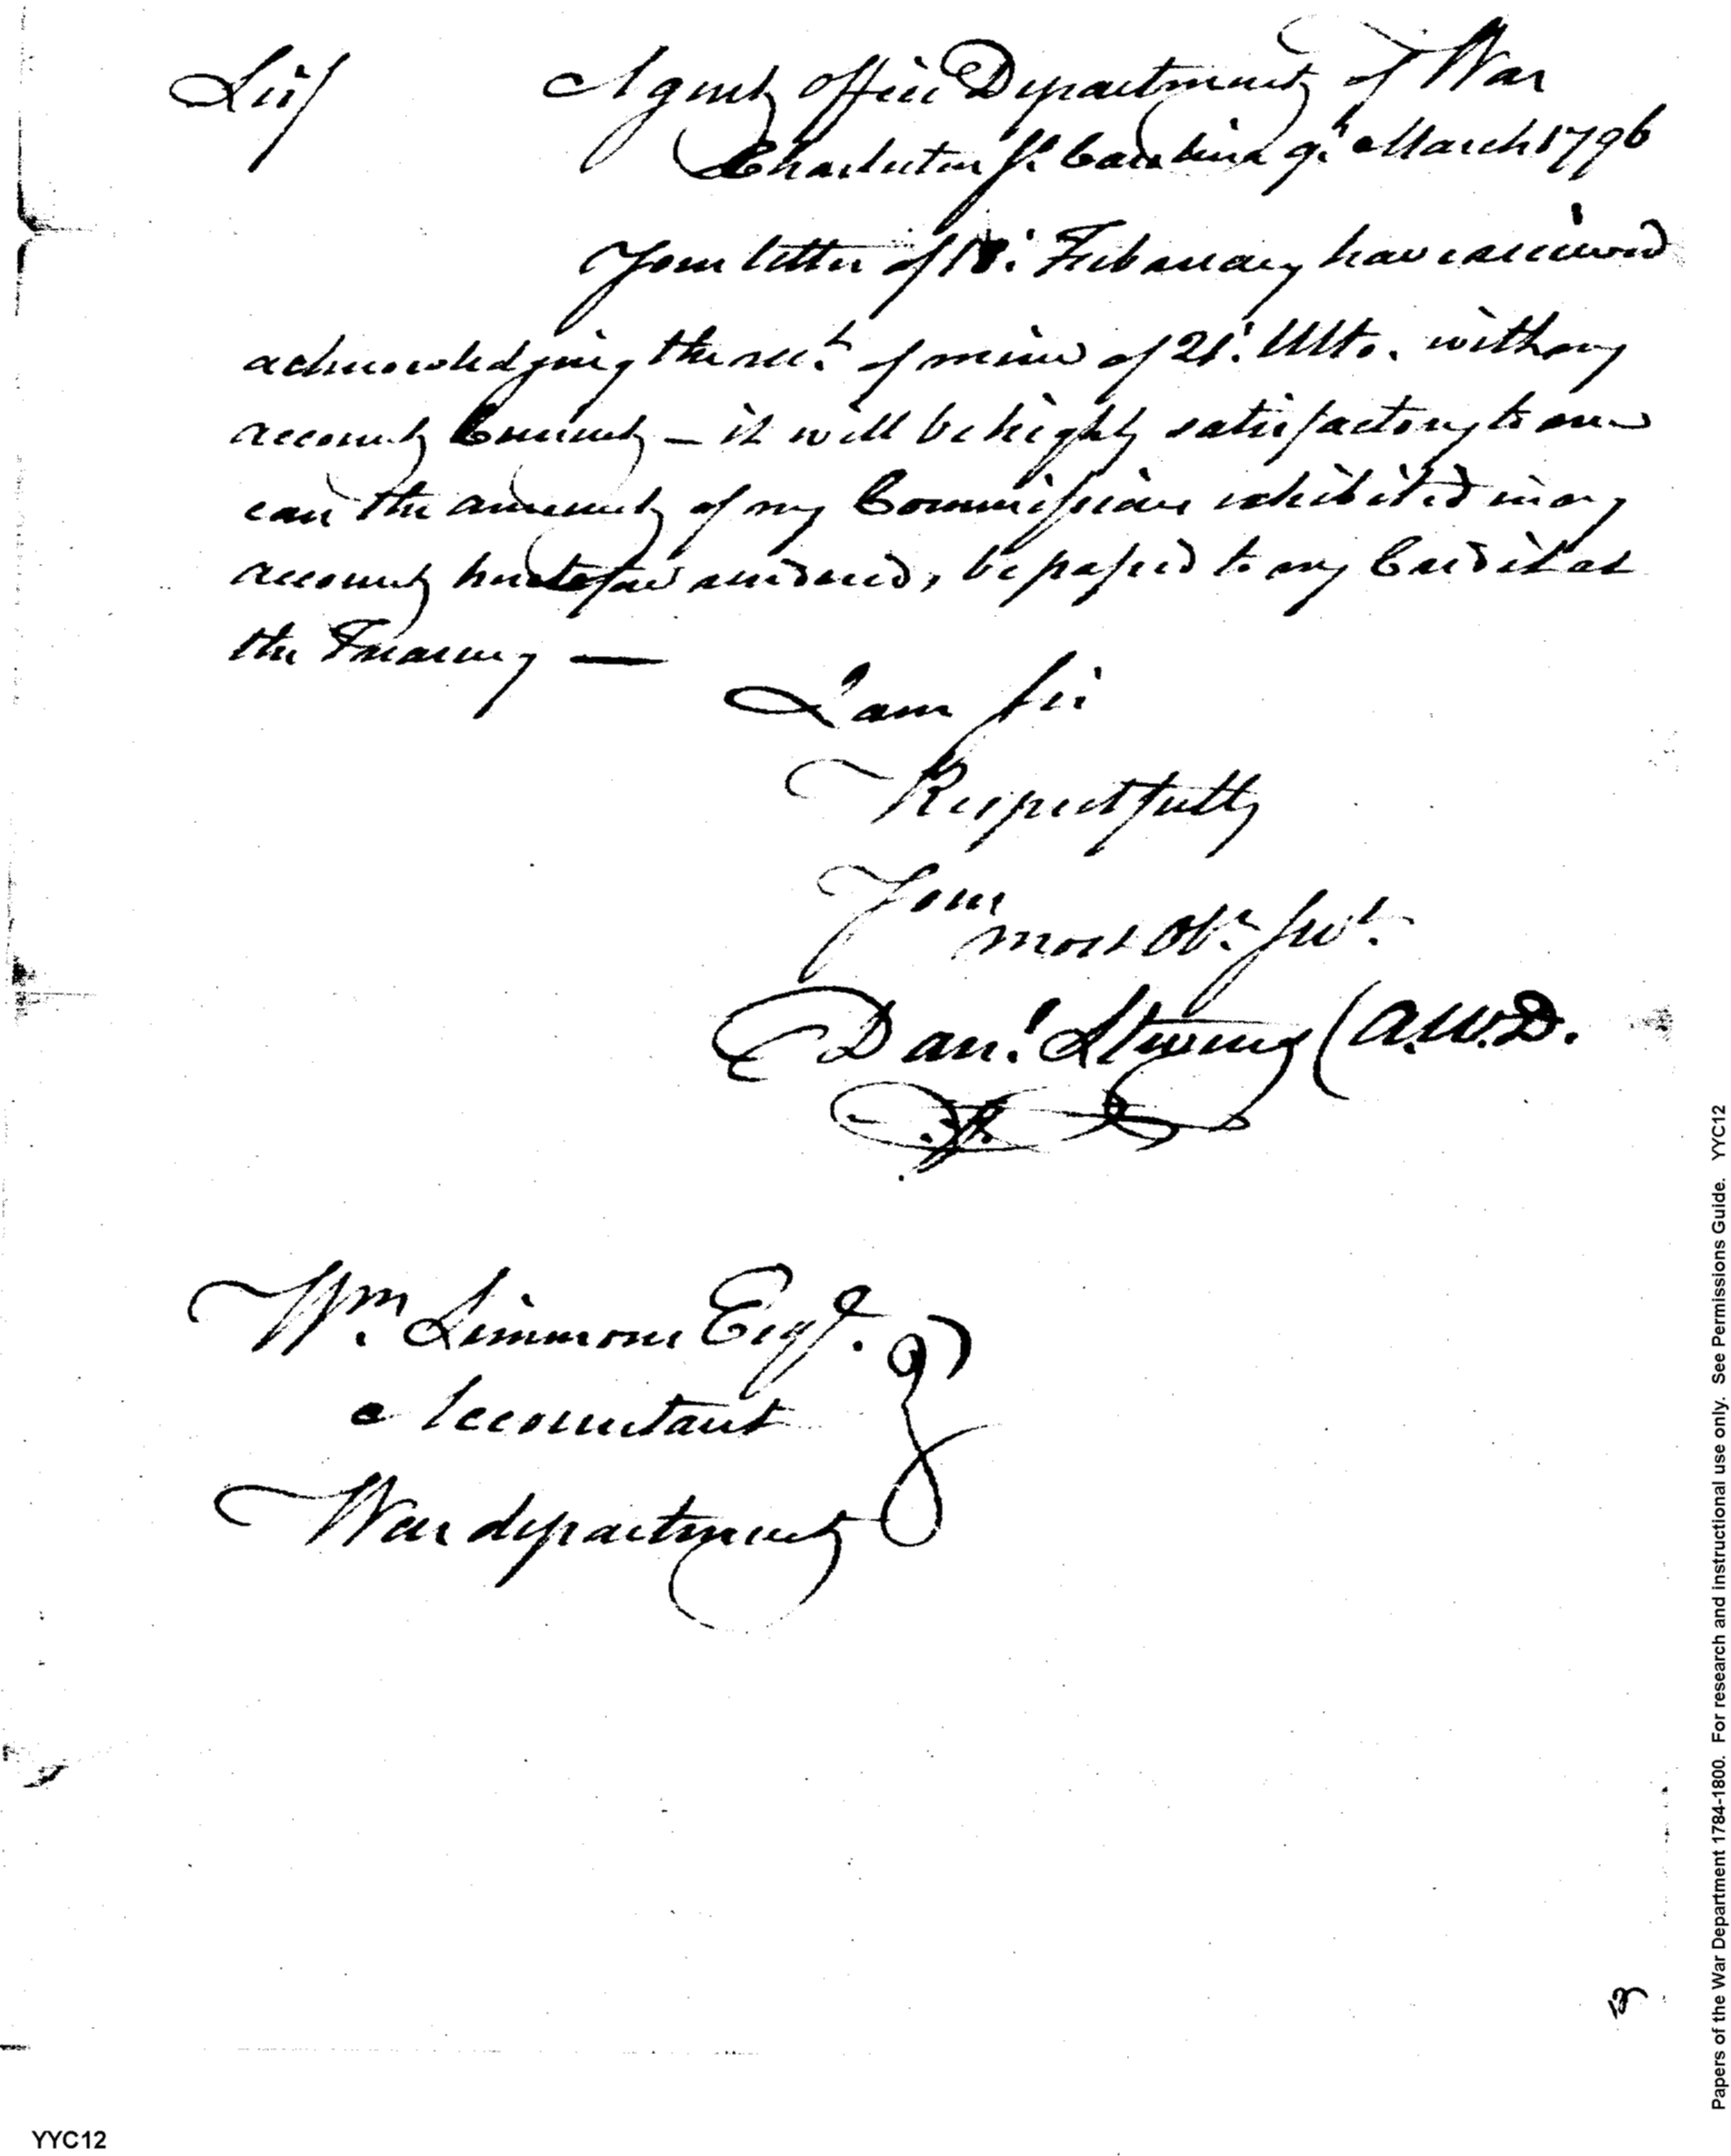 Sir/
Agent office Department of War
Charleston So. Carolina 9th March 1796
Your letter of 18th Feebruary have received
acknowledging the rect. of mine of 21st. Ulto. with my
account Current – it will be highly satisfactory to me
can the amount of my Commissions exhibited in my
account heretofore rendered, be passed to my Credit at
the Treasury —
I am Sir
Respectfully
Your
most Obt. Servt.
Danl. Stevens (A.W.D.
Wm. Simmons Esqr.
Accountant
War department
Papers of the War Department 1784-1800. For research and instructional use only. See Permissions Guide. YYC12
YYC12